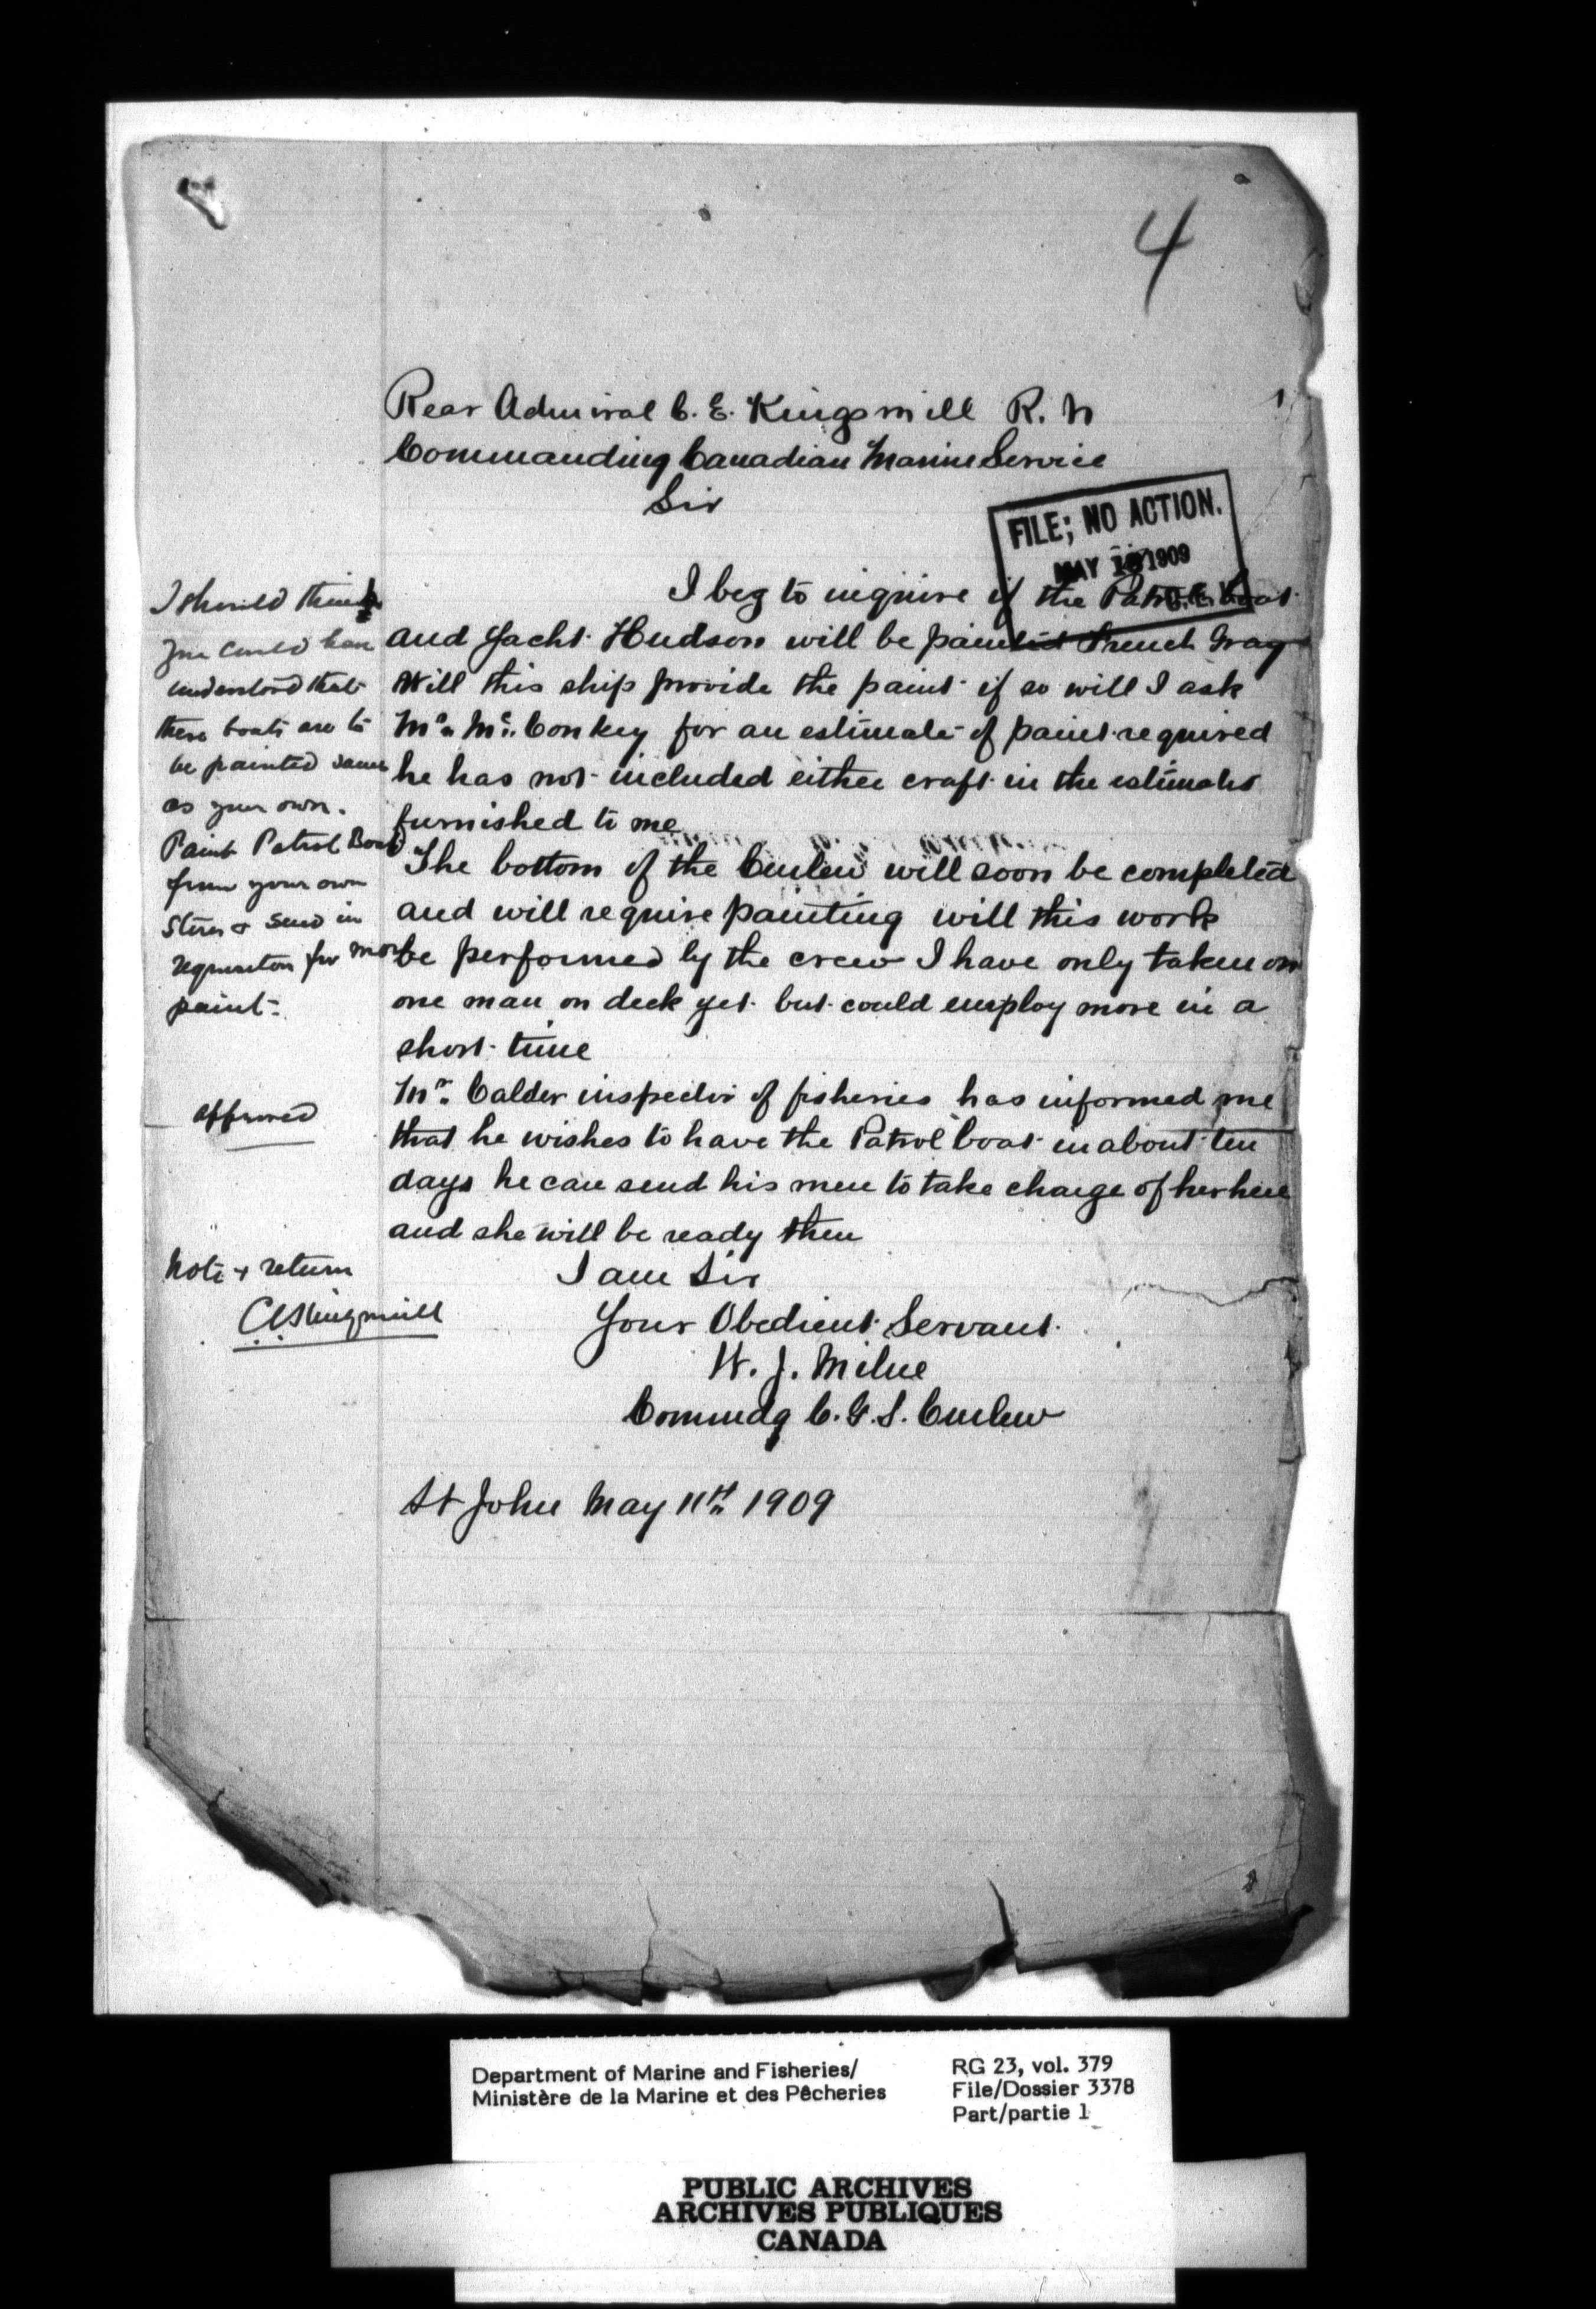 4
Rear Admiral C. E. Kingsmill R. N
Commanding Canadian Marine Service
Sir
FILE; NO ACTION.
MAY 1909
I beg to inquire if the Patrol boat
and Yacht Hudson will be painted French Gray
Will this ship provide the paint if so will I ask
Mr. Mc. Conkey for an estimate of paint required
he has not included either craft in the estimates
furnished to me
The bottom of the Curlew will soon be completed
and will require painting will this work
be performed by the crew I have only taken on
one man on deck yet but could employ more in a
short time
Mr. Calder inspector of fisheries has informed me
that he wishes to have the Patrol boat in about ten
days he can send his men to take charge of her here
and she will be ready then
I am Sir
Your Obedient Servant
W. J. Milne
Commdg C. G. S. Curlew
St John May 11th 1909
I should think
you could have
understood that
these boats are to
be painted same
as your own.
Paint Patrol Boat
from your own
Stores & send in
requisition for more
paint.
Approved
Note & return
CEKingsmill
Department of Marine and Fisheries/
Ministère de la Marine et des Pêcheries
RG 23, vol. 379
File/Dossier 3378
Part/partie 1
PUBLIC ARCHIVES
ARCHIVES PUBLIQUES
CANADA